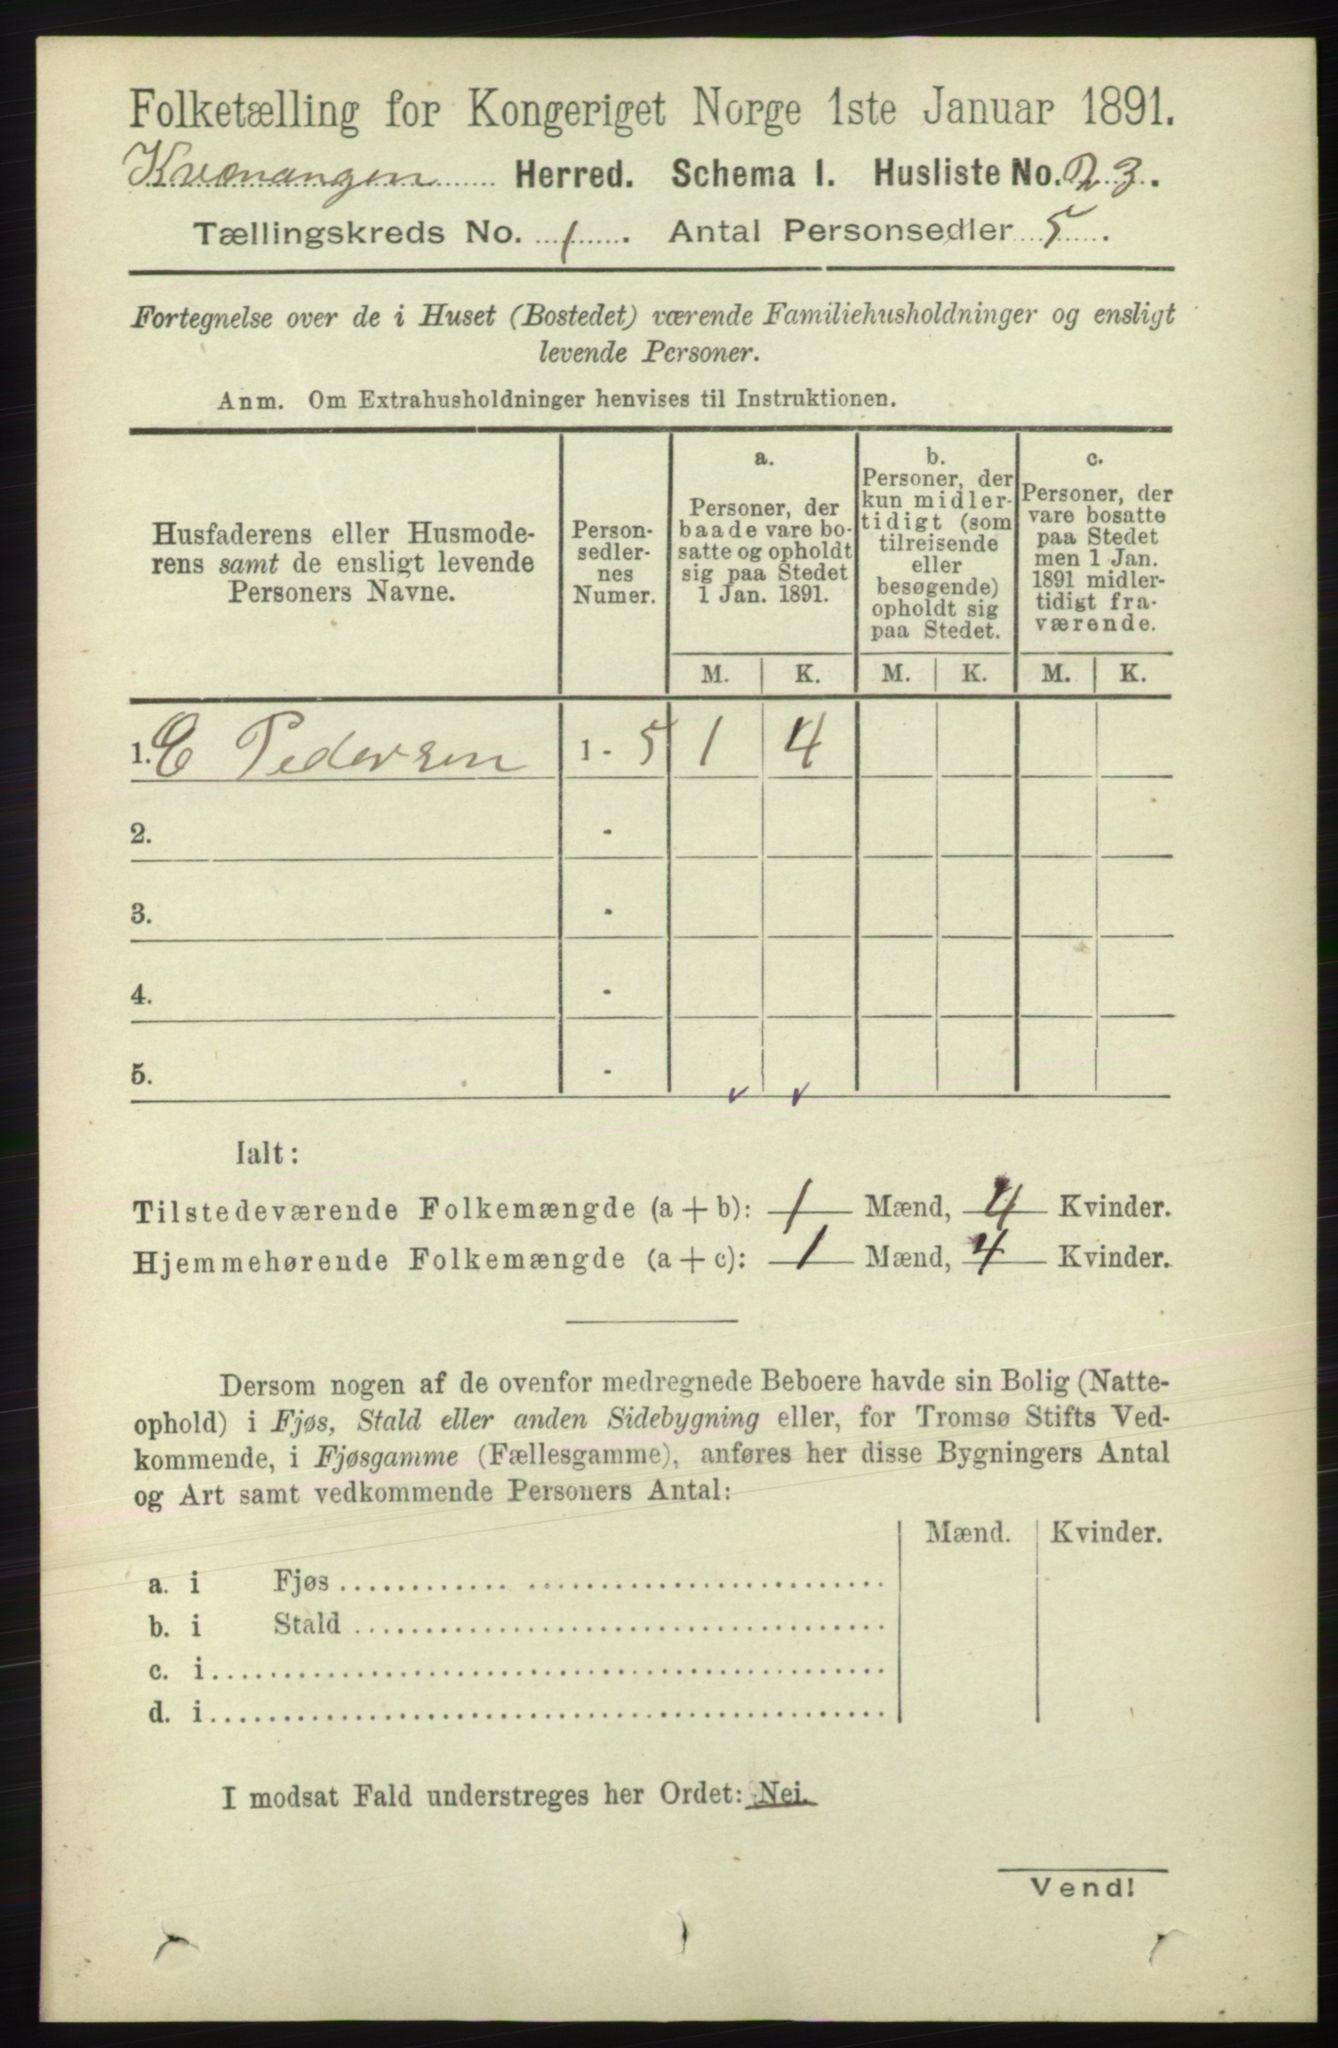 Folketælling for Kongeriget Norge 1ste Januar 1891.
Kvænangen Herred. Schema I. Husliste No. 23.
Tællingskreds No. 1. Antal Personsedler 5.
Fortegnelse over de i Huset (Bostedet) værende Familiehusholdninger og ensligt
levende Personer.
Anm. Om Extrahusholdninger henvises til Instruktionen.
Husfaderens eller Husmode-
rens samt de ensligt levende
Personers Navne.
Person-
sedler-
nes
Numer.
a.
Personer, der
baade vare bo-
satte og opholdt
sig paa Stedet
1 Jan. 1891.
b.
Personer, der
kun midler-
tidigt (som
tilreisende
eller
besøgende)
opholdt sig
paa Stedet.
c.
Personer, der
vare bosatte
paa Stedet
men 1 Jan.
1891 midler-
tidigt fra-
værende.
M. K. M. K. M. K.
1. E Pedersen 1 - 5 1 4
2. -
3. -
4. -
5. -
Ialt:
Tilstedeværende Folkemængde (a + b): 1 Mænd, 4 Kvinder.
Hjemmehørende Folkemængde (a + c): 1 Mænd, 4 Kvinder.
Dersom nogen af de ovenfor medregnede Beboere havde sin Bolig (Natte-
ophold) i Fjøs, Stald eller anden Sidebygning eller, for Tromsø Stifts Ved-
kommende, i Fjøsgamme (Fællesgamme), anføres her disse Bygningers Antal
og Art samt vedkommende Personers Antal:
Mænd. Kvinder.
a. i Fjøs
b. i Stald
c. i
d. i
I modsat Fald understreges her Ordet: Nei.
Vend!